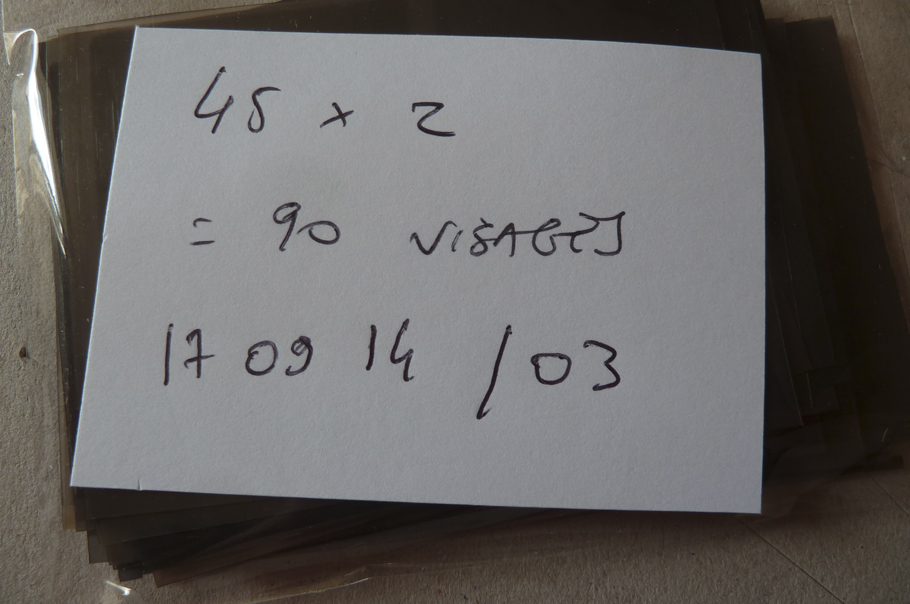 45 x 2
= 90 VISAGES
17 09 14 / 03